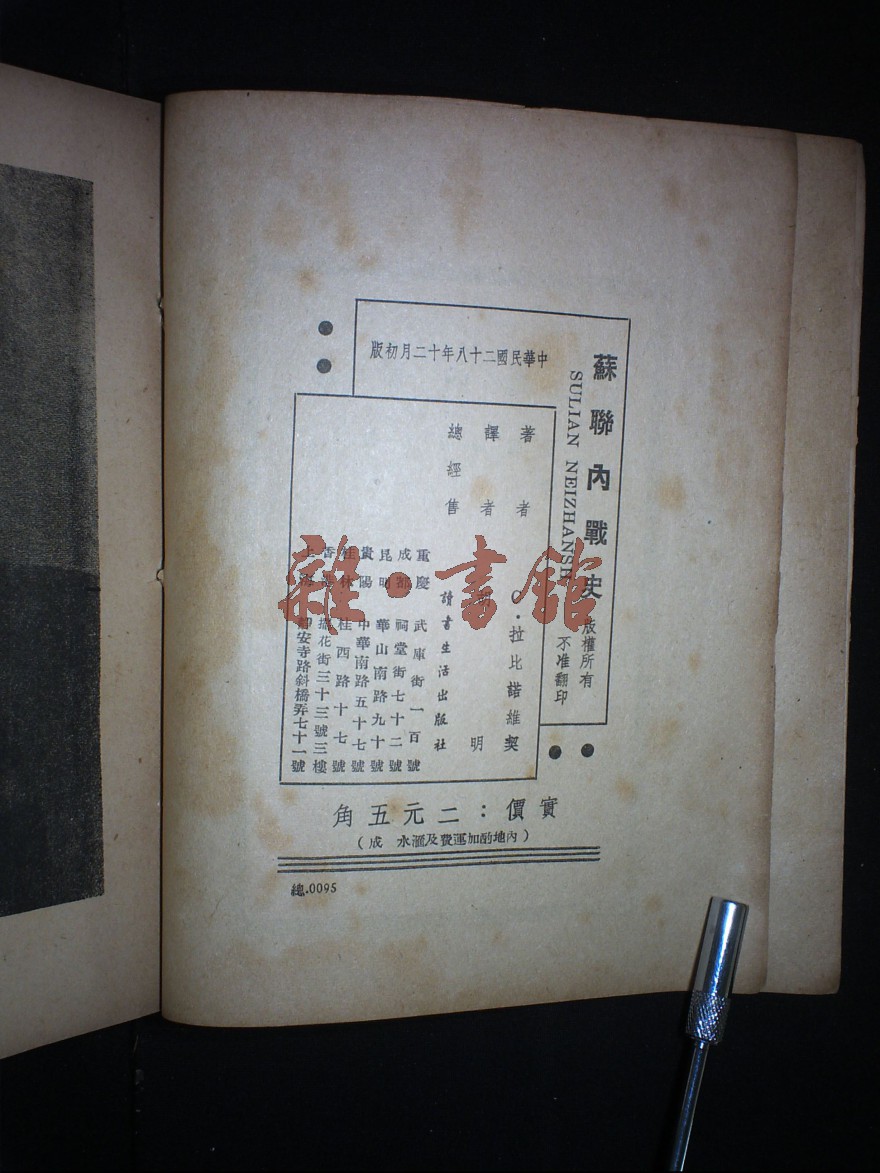 蘇聯內戰史
SULIAN NEIZHANSH
版權所有
不准翻印
中華民國二十八年十二月初版
著者 拉比諾維契
譯者 明
總經售 讀書生活出版社
重慶 武庫街一百號
成都 祠堂街七十二號
昆明 華山南路九十號
貴陽 中華南路五十七號
桂林 桂西路十七號
香港 擺花街三十三號三樓
上海 靜安寺路斜橋弄七十一號
實價：二元五角
（內地酌加運費及滙水 成）
總.0095
雜·書館